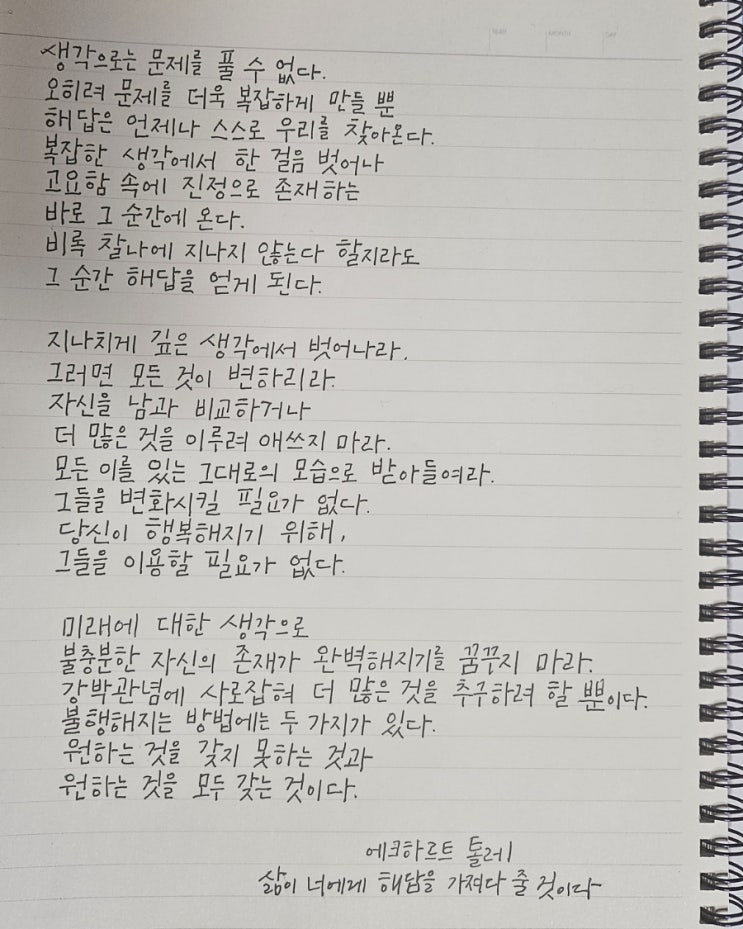 생각으로는 문제를 풀 수 없다.
오히려 문제를 더욱 복잡하게 만들 뿐
해답은 언제나 스스로 우리를 찾아온다.
복잡한 생각에서 한 걸음 벗어나
고요함 속에 진정으로 존재하는
바로 그 순간에 온다.
비록 찰나에 지나지 않는다 할지라도
그 순간 해답을 얻게 된다.
지나치게 깊은 생각에서 벗어나라.
그러면 모든 것이 변하리라.
자신을 남과 비교하거나
더 많은 것을 이루려 애쓰지 마라.
모든 이를 있는 그대로의 모습으로 받아들여라.
그들을 변화시킬 필요가 없다.
당신이 행복해지기 위해,
그들을 이용할 필요가 없다.
미래에 대한 생각으로
불충분한 자신의 존재가 완벽해지기를 꿈꾸지 마라.
강박관념에 사로잡혀 더 많은 것을 추구하려 할 뿐이다.
불행해지는 방법에는 두 가지가 있다.
원하는 것을 갖지 못하는 것과
원하는 것을 모두 갖는 것이다.
에크하르트 톨레
삶이 너에게 해답을 가져다 줄 것이다